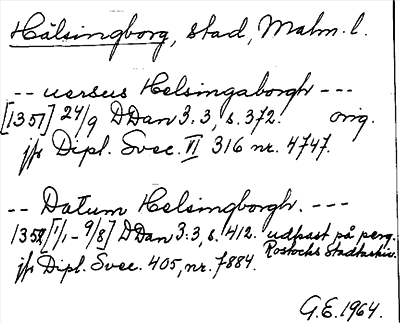 Hälsingborg, stad, Malm. l.
-- uersus Helsingaborgh ---
[1351] 24/9 DDan 3:3, s. 372. orig.
jfr Dipl. Svec. VI 316 nr. 4747.
-- Datum Helsingborgh. ---
1352 [1/1 - 9/8] DDan 3:3, s. 412. udkast på perg.
Rostocks Stadtarkiv.
jfr Dipl. Svec. 405, nr. 7884.
G.E. 1964.